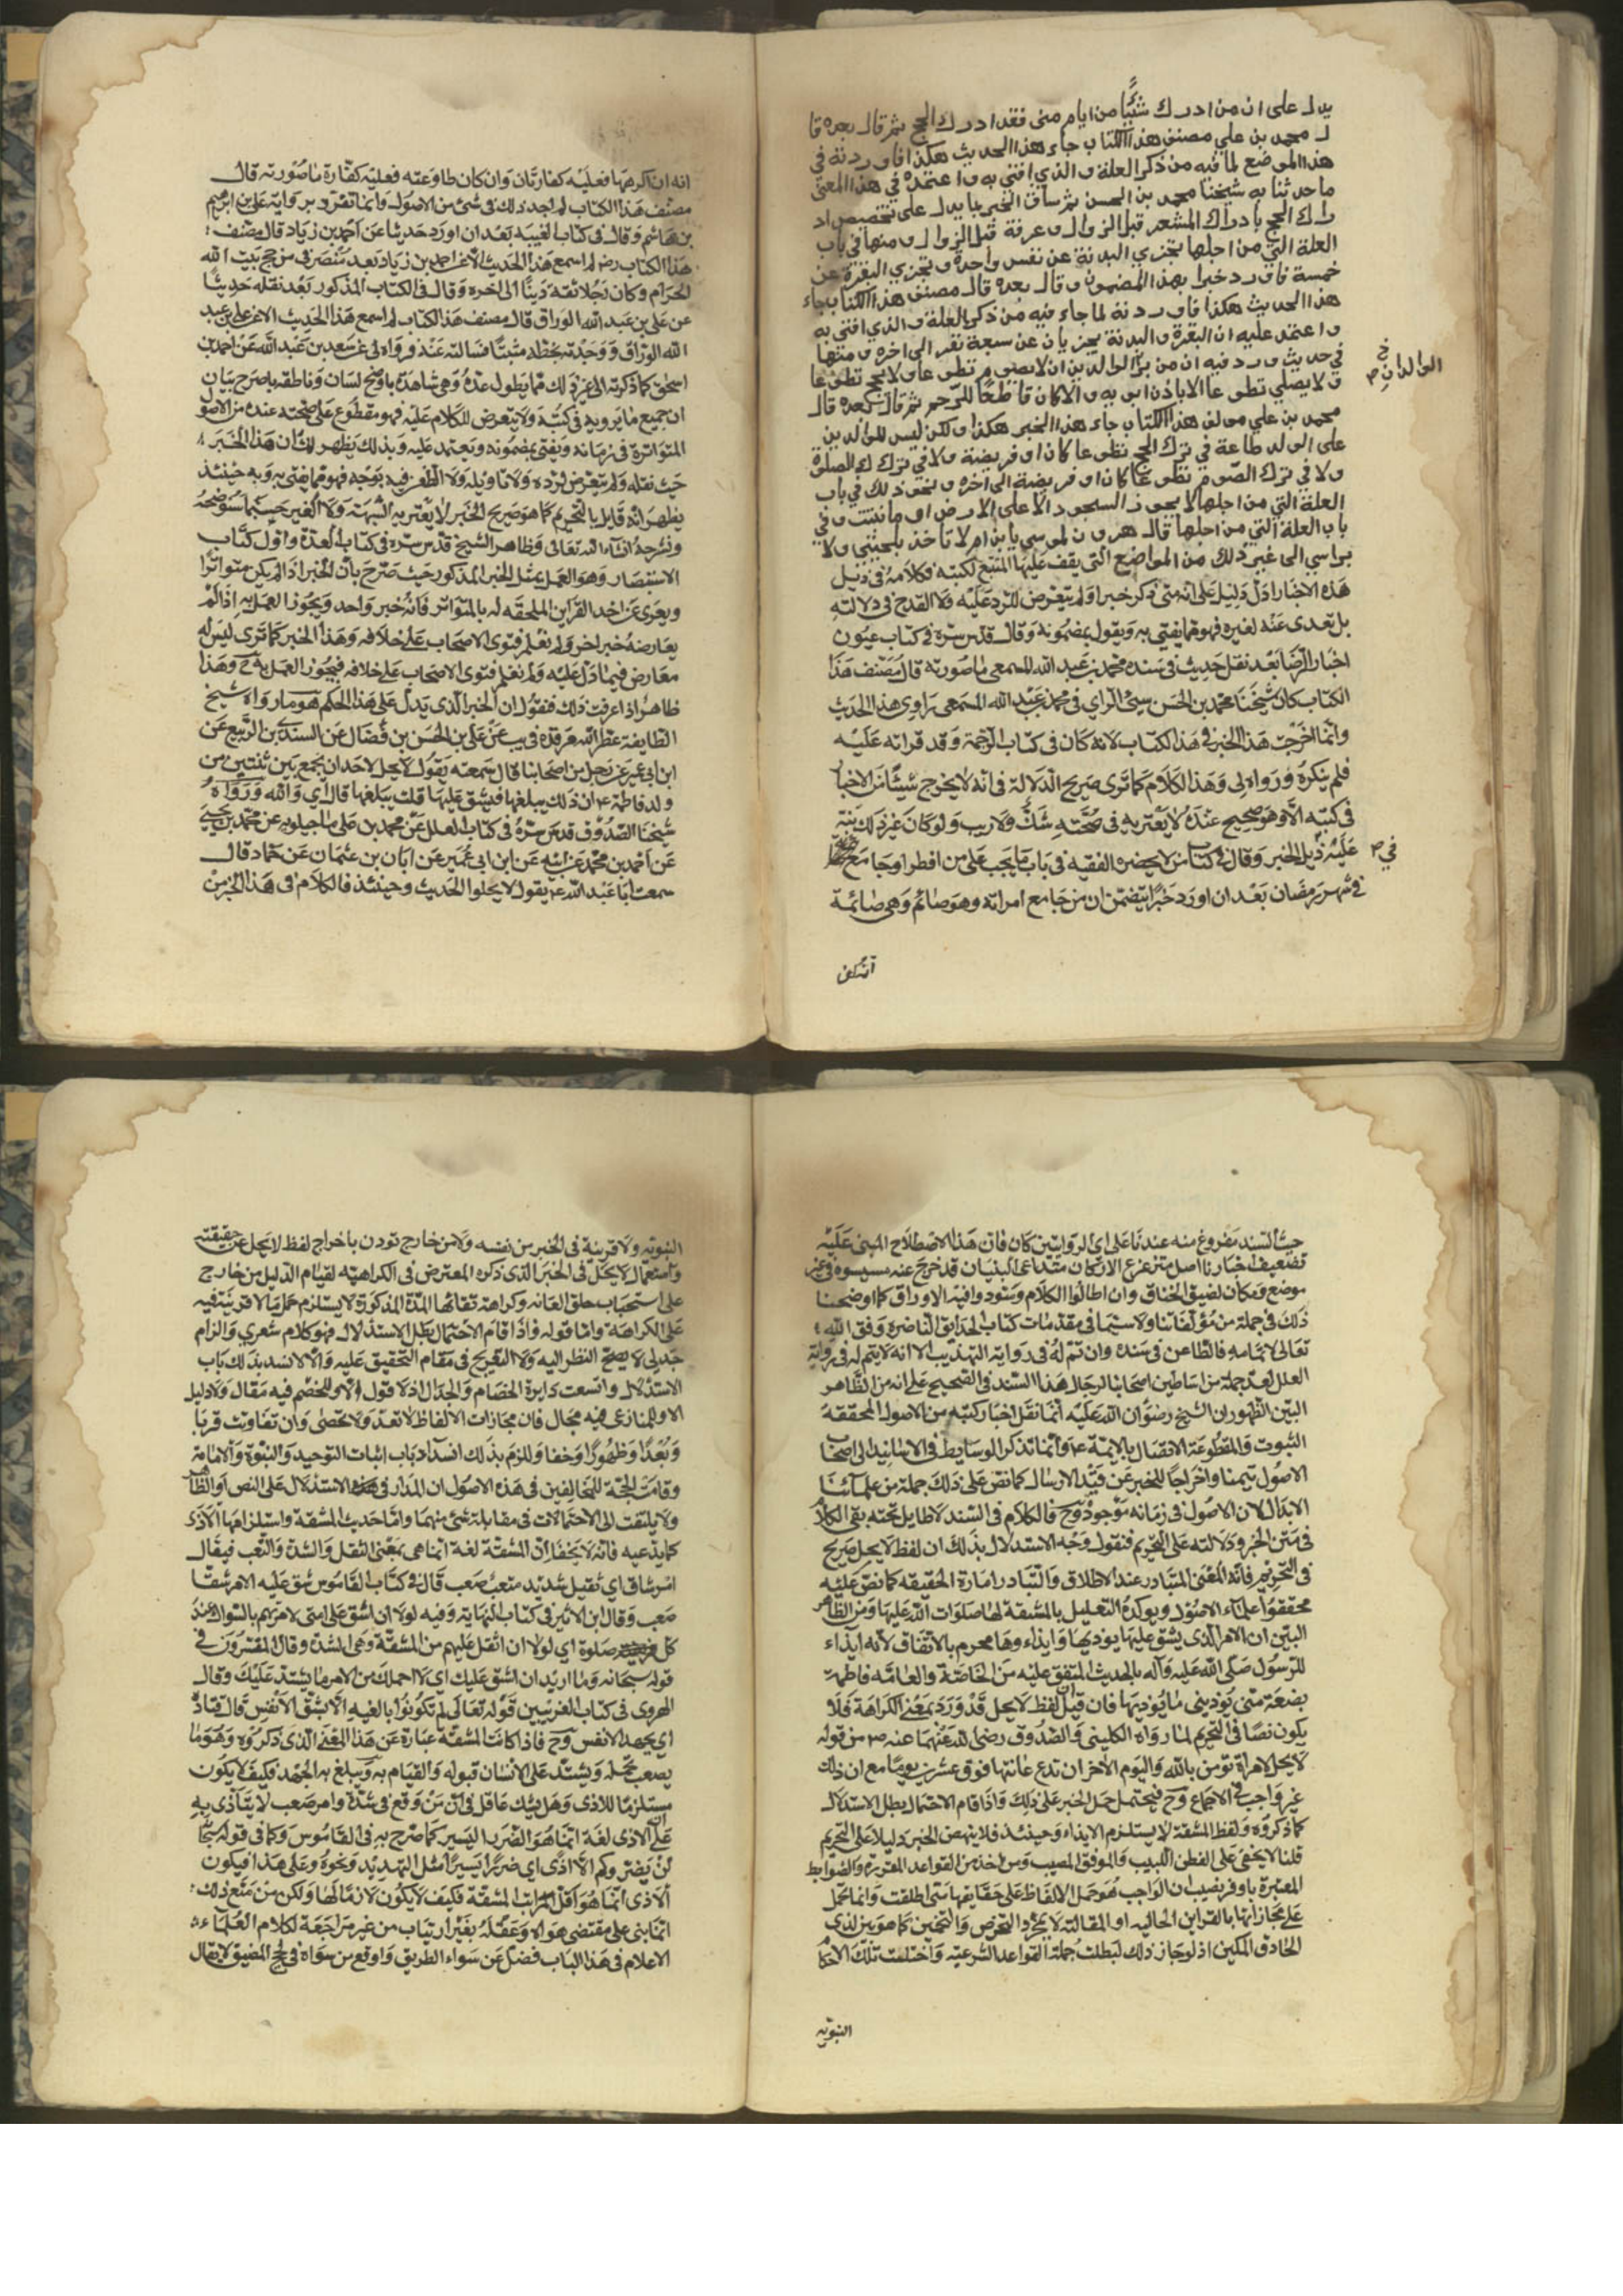 يدل على ان من ادرك شيئا من ايام منى فقد ادرك الحج ثم قال بعده قا
ل محمد بن علي مصنف هذا الكتاب جاء هذا الحديث هكذا فاوردته في
هذا الموضع لما فيه من ذكر العلة والذي افتي به واعتمده في هذا المعنى
ما حدثنا به شيخنا محمد بن الحسن ثم ساق الخبر بما يدل على تخصيص اد
راك الحج بادراك المشعر قبل الزوال وعرفة قبل الزوال ومنها في باب
العلة التي من اجلها تجزي البدنة عن نفس واحدة وتجزي البقرة عن
خمسة فاورد خبرا بهذا المضمون وقال بعده قال مصنف هذا الكتاب جاء
هذا الحديث هكذا فاوردته لما جاء فيه من ذكر العلة والذي افتي به
واعتمد عليه ان البقرة والبدنة يجزيان عن سبعة نفر الى اخره ومنها
في حديث ورد فيه ان من بر الوالدين ان لا يصوم تطوعا ولا يحج تطوعا
ولا يصلي تطوعا الا باذن ابويه والا كان قاطعا للرحم ثم قال بعده قال
الوالدان خ
محمد بن علي مولف هذا الكتاب جاء هذا الخبر هكذا ولكن ليس للوالدين
على الولد طاعة في ترك الحج تطوعا كان او فريضة ولا في ترك الصلوة
ولا في ترك الصوم تطوعا كان او فريضة الى اخره ونحو ذلك في باب
العلة التي من اجلها لا يجوز السجود الا على الارض او ما نبتت وفي
باب العلة التي من اجلها قال هرون لموسي يا بن ام لا تاخذ بلحيتي ولا
براسي الى غير ذلك من المواضع التي يقف عليها المتتبع لكتبه فكلامه في ذيل
هذه الاخبار ادل دليل على انه متى ذكر خبرا ولم يتعرض للرد عليه ولا القدح في دلالته
بل تعدى عنه لغيره فهو مما يفتي به ويقول بمضمونه وقال قدس سره في كتاب عيون
اخبار الرضا بعد نقل حديث في سنده محمد بن عبد الله المسمعي ما صورته قال مصنف هذا
الكتاب كان شيخنا محمد بن الحسن سيئ الراي في محمد بن عبد الله المسمعي راوي هذا الحديث
وانما اخرجت هذا الخبر في هذا الكتاب لانه كان في كتاب الرحمة وقد قراته عليه
فلم ينكره ورواه لي وهذا الكلام كما ترى صريح الدلالة في انه لا يخرج شيئا من الاخبار
في كتبه الا وهو صحيح عنده لا يعتريه في صحته شك ولا ريب ولو كان غير ذلك نبه
في
عليه ذيل الخبر وقال في كتاب من لا يحضره الفقيه في باب ما يجب على من افطر او جامع
في شهر رمضان بعد ان اورد خبرا يتضمن ان من جامع امراته وهو صائم وهي صائمة
انه ان اكرهها فعليه كفارتان وان كان طاوعته فعليه كفارة ما صورته قال
مصنف هذا الكتاب لم اجد ذلك في شئ من الاصول وانما تفرد بروايته علي بن ابرهيم
بن هاشم وقال في كتاب الغيبة بعد ان اورد حديثا عن احمد بن زياد قال مصنف
هذا الكتاب رضه لم اسمع هذا الحديث الا من احمد بن زياد بعد منصرفي من حج بيت الله
الحرام وكان رجلا ثقة دينا الى اخره وقال في الكتاب المذكور بعد نقله حديثا
عن علي بن عبد الله الوراق قال مصنف هذا الكتاب لم اسمع هذا الحديث الا من علي بن عبد
الله الوراق ووجدته بخطه مثبتا فسالته عنه فرواه لي عن سعد بن عبد الله عن احمد بن
اسحق كما ذكرته الى غير ذلك مما يطول عده وهي شاهدة باوضح لسان وناطقة باصرح بيان
ان جميع ما يرويه في كتبه ولا يتعرض للكلام عليه فهو مقطوع على صحته عنده من الاصو
المتواترة في زمانه ويفتي بمضمونه ويعتمد عليه وبذلك يظهر لك ان هذا الخبر
حيث نقله ولم يتعرض لرده ولا تاويله ولا الطعن فيه بوجه فهو مما يفتي به وبه حينئذ
يظهر انه قايل بالتحريم كما هو صريح الخبر لا يعتريه الشبهة ولا الغير حسبما سنوضحه
ونشرحه انشاء الله تعالى وظاهر الشيخ قدس سره في كتاب العدة واول كتاب
الاستبصار وهو العمل بمثل الخبر المذكور حيث صرح بان الخبر اذا لم يكن متواترا
ويعرى عن احد القراين الملحقه له بالمتواتر فانه خبر واحد ويجوز العمل به اذا لم
يعارضه خبر اخر ولم نعلم فتوى الاصحاب على خلافه وهذا الخبر كما ترى ليس له
معارض فيما دل عليه ولم نعلم فتوى الاصحاب على خلافه فيجوز العمل به ح وهذا
ظاهر اذا عرفت ذلك فنقول ان الخبر الذى يدل على هذا الحكم هو ما رواه شيخ
الطايفة عطر الله مرقده في يب عن علي بن الحسن بن فضال عن السندي بن الربيع عن
ابن ابي عمير عن رجل من اصحابنا قال سمعته يقول لا يحل لاحد ان يجمع بين ثنتين من
ولد فاطمة ع ان ذلك يبلغها فيشق عليها قلت يبلغها قال اي والله ورواه
شيخنا الصدوق قدس سره في كتاب العلل عن محمد بن علي ماجيلويه عن محمد بن يحيى
عن احمد بن محمد عن ابيه عن ابن ابي عمير عن ابان بن عثمان عن حماد قال
سمعت ابا عبد الله ع يقول لا يحل الحديث وحينئذ فالكلام في هذا الخبر من
حيث السند مفروغ منه عندنا على اي الروايتين كان فان هذا الاصطلاح المبني عليه
تضعيف اخبارنا اصل متزعزع الاركان متداعي البنيان قد خرج عنه مسيسوه في غير
موضع ومكان لضيق الخناق وان اطالوا الكلام وسودوا فيه الاوراق كما اوضحنا
ذلك في جملة من مؤلفاتنا ولا سيما في مقدمات كتاب الحدايق الناضرة وفق الله
تعالى لاتمامه فالطاعن في سنده وان تم له في رواية التهذيب الا انه لا يتم له في رواية
العلل لعد جملة من اساطين اصحاب الرجال هذا السند في الصحيح على انه من الظاهر
البين الظهور ان الشيخ رضوان الله عليه انما نقل اخبار كتبه من الاصول المحققة
الثبوت والمقطوعة الاتصال بالائمة ع وانما تذكر الوسايط في الاسانيد الى اصحاب
الاصول تيمنا واخراجا للخبر عن قيد الارسال كما نص على ذلك جملة من علمائنا
الابدال لان الاصول في زمانه موجودة وح فالكلام في السند لا طايل تحته بقى الكلام
في متن الخبر ودلالته على التحريم فنقول وجه الاستدلال بذلك ان لفظ لا يحل صريح
في التحريم فانه المعنى المتبادر عند الاطلاق والتبادر امارة الحقيقه كما نص عليه
محققوا علماء الاصول ويوكده التعليل بالمشقة لها صلوات الله عليها ومن الظاهر
البين ان الامر الذى يشق عليها يوذيها وايذاءها محرم بالاتفاق لانه ايذاء
للرسول صلى الله عليه وآله بالحديث المتفق عليه من الخاصة والعامة فاطمة
بضعة مني يوذيني ما يوذيها فان قيل ان لفظ لا يحل قد ورد بمعنى الكراهة فلا
يكون نصا في التحريم لما رواه الكليني والصدوق رضى الله عنهما عنه ص من قوله
لا يحل لامراة تومن بالله واليوم الاخر ان تدع عانتها فوق عشرين يوما مع ان ذلك
غير واجب في الاجماع وح فيحتمل حمل الخبر على ذلك واذا قام الاحتمال بطل الاستدلال
كما ذكروه ولفظ المشقة لا يستلزم الايذاء وحينئذ فلا ينهض الخبر دليلا على التحريم
قلنا لا يخفى على الفطن اللبيب والموفق المصيب ومن اخذ من القواعد المقررة والضوابط
المعتبرة باوفر نصيب ان الواجب هو حمل الالفاظ على حقايقها متى اطلقت وانما تحمل
على مجازاتها بالقراين الحالية او المقالية لا بمجرد التخرص والتخمين كما هو بين لذى
الحاذق المكين اذ لو جاز ذلك لبطلت جملة القواعد الشرعية واختلت تلك الاحكام
النبوية
النبوية ولا قرينة في الخبر من نفسه ولا من خارج توذن باخراج لفظ لا يحل عن حقيقته
واستعمال لا يحل في الخبر الذى ذكره المعترض في الكراهية لقيام الدليل من خارج
على استحباب حلق العانه وكراهة تفائها المدة المذكورة لا يستلزم حمل ما لا قرينة فيه
على الكراهة واما قوله فاذا قام الاحتمال بطل الاستدلال فهو كلام شعري والزام
جدلي لا يصح النظر اليه ولا التعريج في مقام التحقيق عليه والا لانسد بذلك باب
الاستدلال واتسعت دايرة الخصام والجدال اذ لا قول الا وللخصم فيه مقال ولا دليل
الا وللمنازع فيه مجال فان مجازات الالفاظ لا تعد ولا تحصى وان تفاوتت قربا
وبعدا وظهورا وخفا وللزم بذلك انسداد باب اثبات التوحيد والنبوة والامامة
وقامت الحجة للمخالفين في هذه الاصول ان المدار في الاستدلال على النص او الظاهر
ولا يلتفت الى الاحتمالات في مقابلة شئ منهما واما حديث المشقة واستلزامها الاذى
كما يدعيه فانه لا يخفا ان المشقة لغة انما هي بمعنى الثقل والشدة والتعب فيقال
امر شاق اي ثقيل شديد متعب صعب قال في كتاب القاموس شق عليه الامر شقا
صعب وقال ابن الاثير في كتاب النهاية وفيه لولا ان اشق على امتي لامرتهم بالسواك عند
كل صلوة اي لولا ان اثقل عليهم من المشقة وهى الشدة وقال المفسرون في
قوله سبحانه وما اريد ان اشق عليك اي لا احملك من الامر ما يشتد عليك وقال
الهروي في كتاب الغريبين قوله تعالى لم تكونوا بالغيه الا بشق الانفس قال قتادة
اي بجهد الانفس وح فاذا كانت المشقة عبارة عن هذا المعنى الذى ذكروه وهو ما
يصعب تحمله ويشتد على الانسان قبوله والقيام به ويبلغ به الجهد فكيف لا يكون
مستلزما للاذى وهل يشك عاقل في ان من وقع في شدة وامر صعب لا يتاذى به
على ان الاذى لغة انما هو الضرر اليسير كما صرح به في القاموس وكما في قوله سبحا
لن يضروكم الا اذى اي ضررا يسيرا مثل التهديد ونحوه وعلى هذا فيكون
الاذى انما هو اقل مراتب المشقة فكيف لا يكون لازما لها ولكن من منع ذلك
انما بنى على مقتضى هواه وعقله بغير ارتياب من غير مراجعة لكلام العلماء
الاعلام في هذا الباب فضل عن سواء الطريق واوقع من سواه في لجج المضيق لا يقال